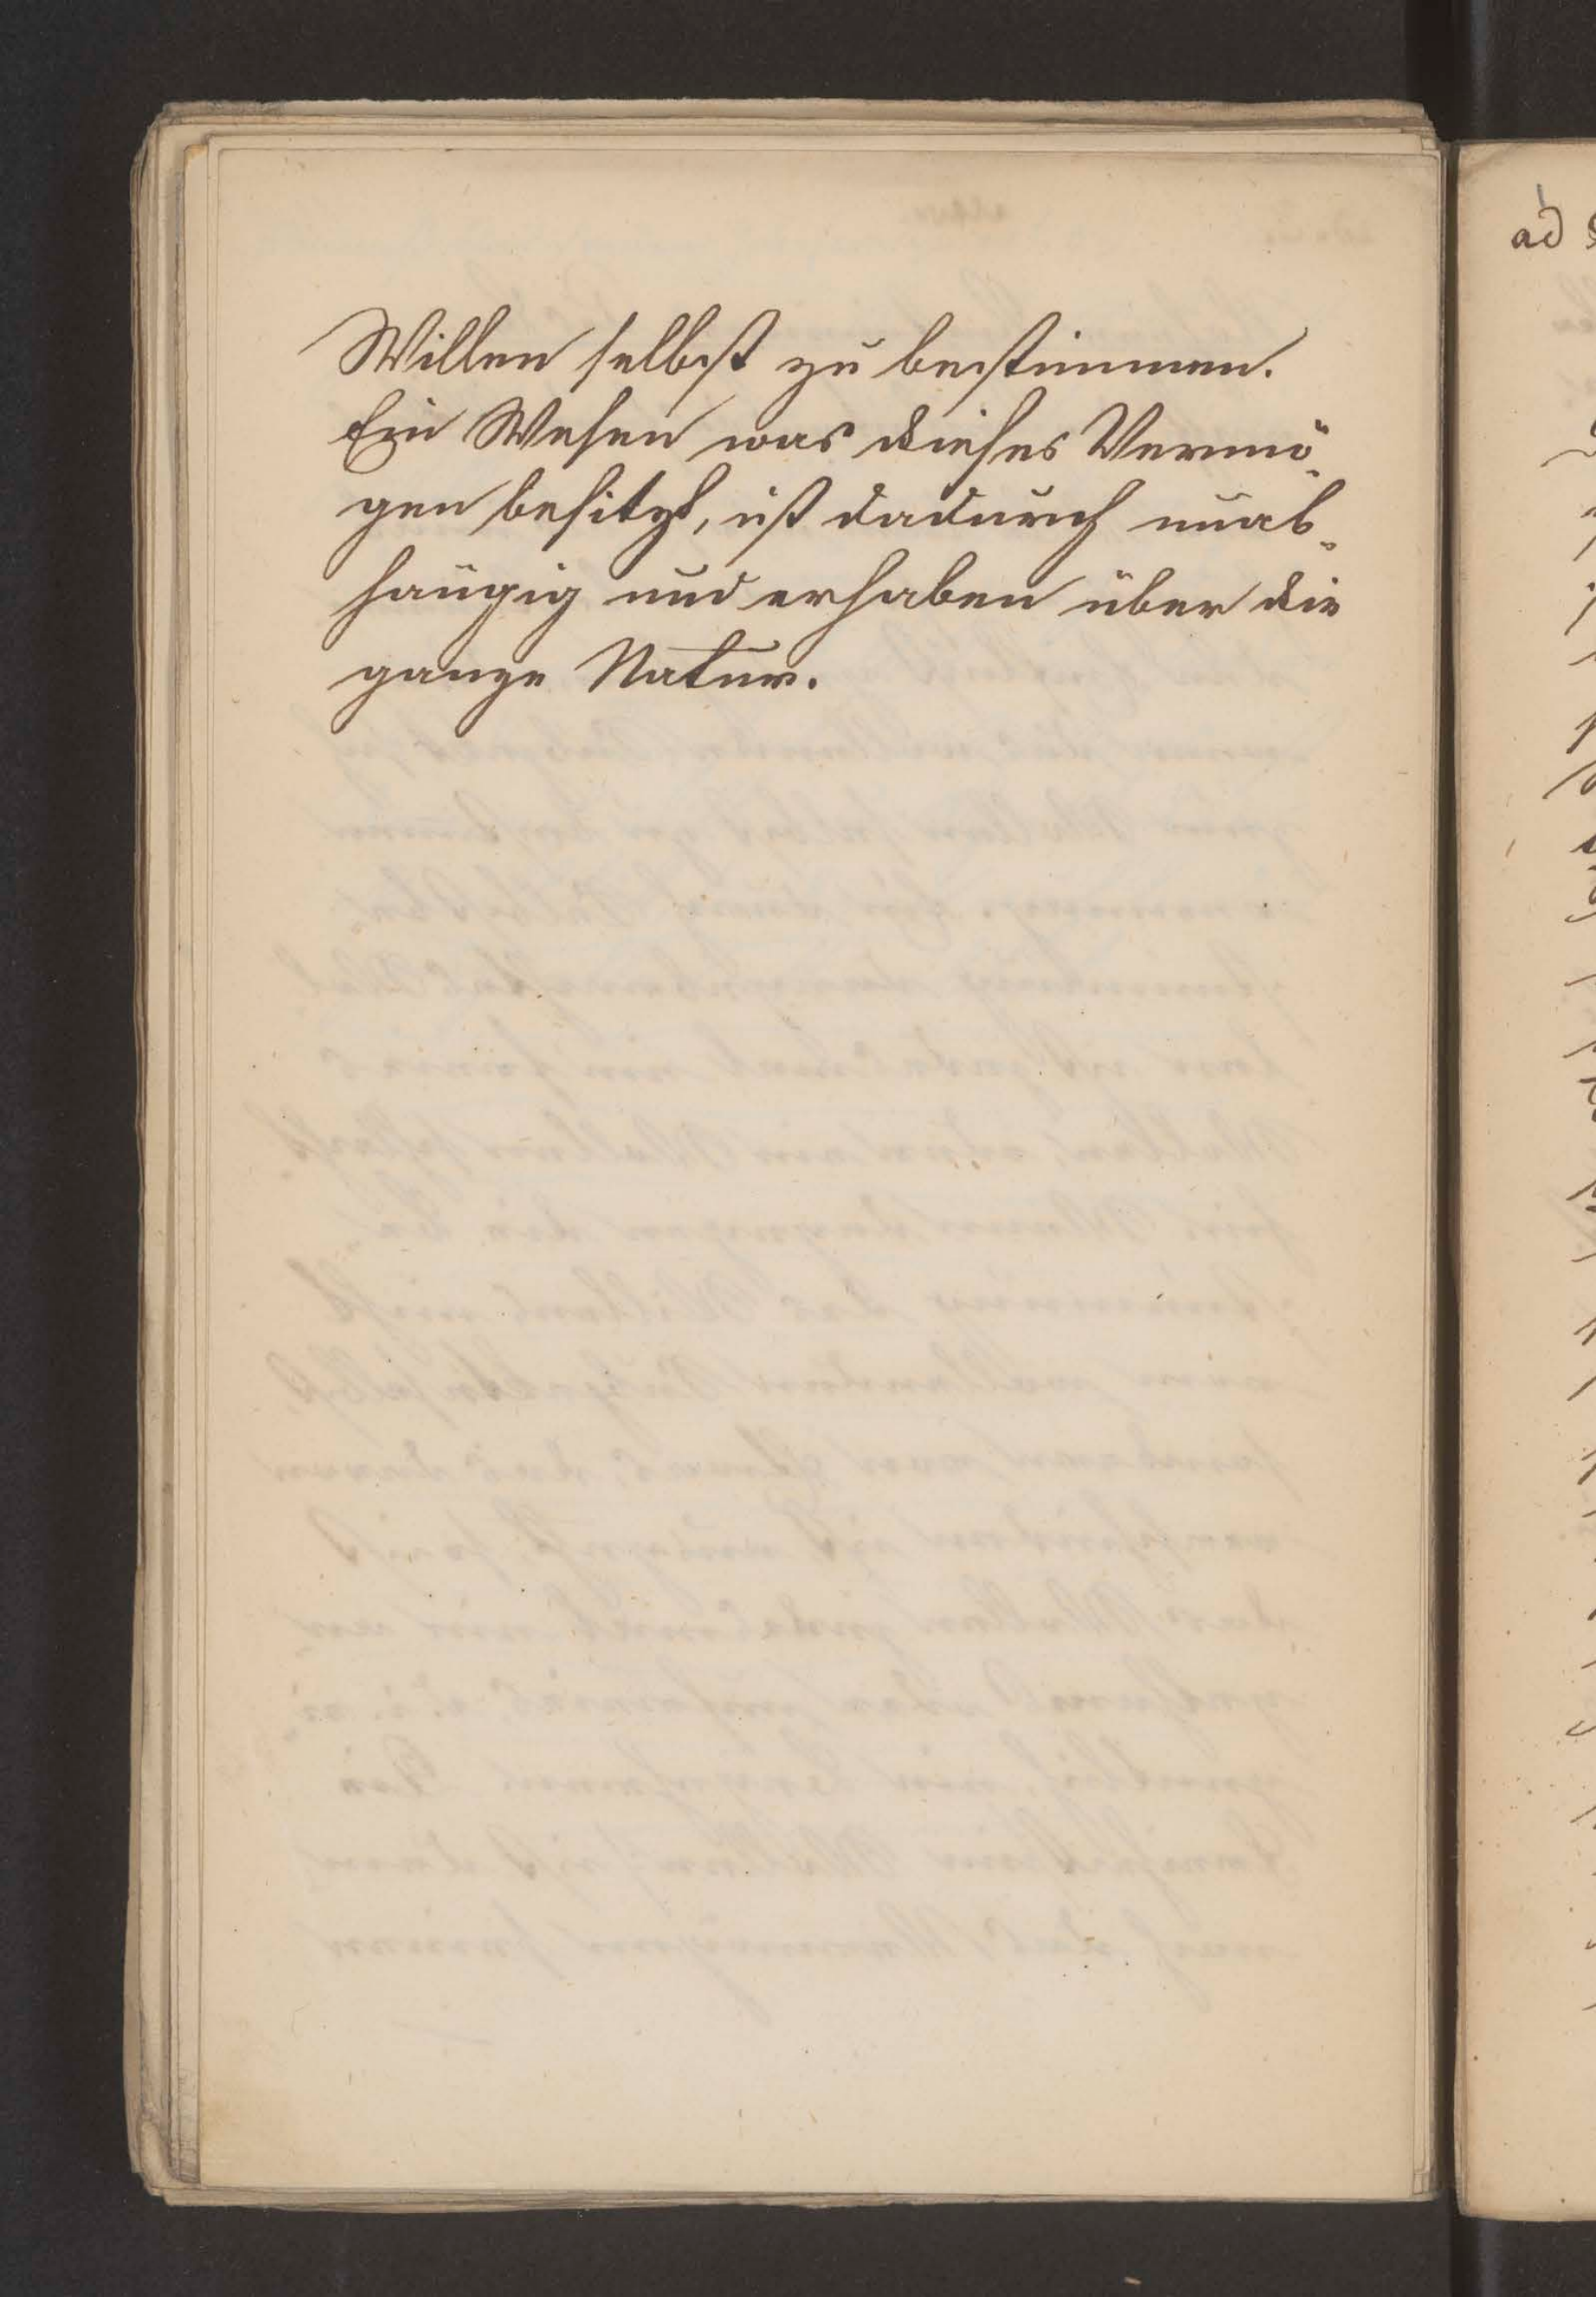 Willen selbst zu bestimmen.
Ein Wesen was dieses Vermö-
gen besitzt, ist dadurch unab-
hängig und erhaben über die
ganze Natur.
ad